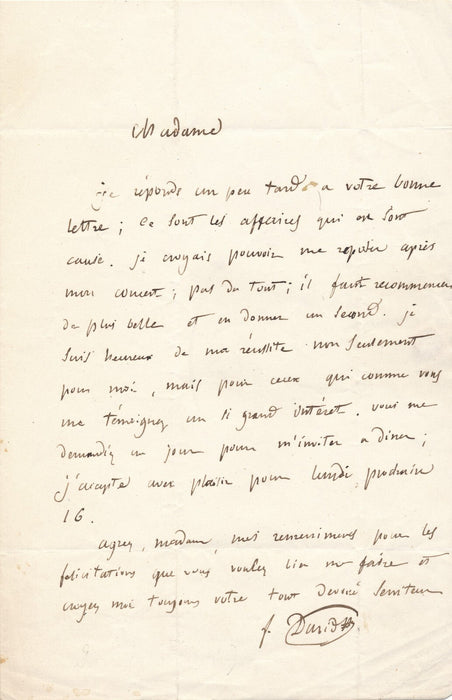 Madame
je réponds un peu tard a votre bonne
lettre ; ce sont les affaires qui en sont
cause. je croyais pouvoir me reposer après
mon concert ; pas du tout ; il faut recommencer
de plus belle et en donner un second. je
suis heureux de ma réussite non seulement
pour moi, mais pour ceux qui comme vous
me témoignez un si grand intérêt. vous me
demandiez un jour pour m'inviter a diner ;
j'accepte avec plaisir pour lundi prochain
16.
agréez, madame, mes remerciments pour les
félicitations que vous voulez bien me faire et
croyez moi toujours votre tout dévoué serviteur
f. David